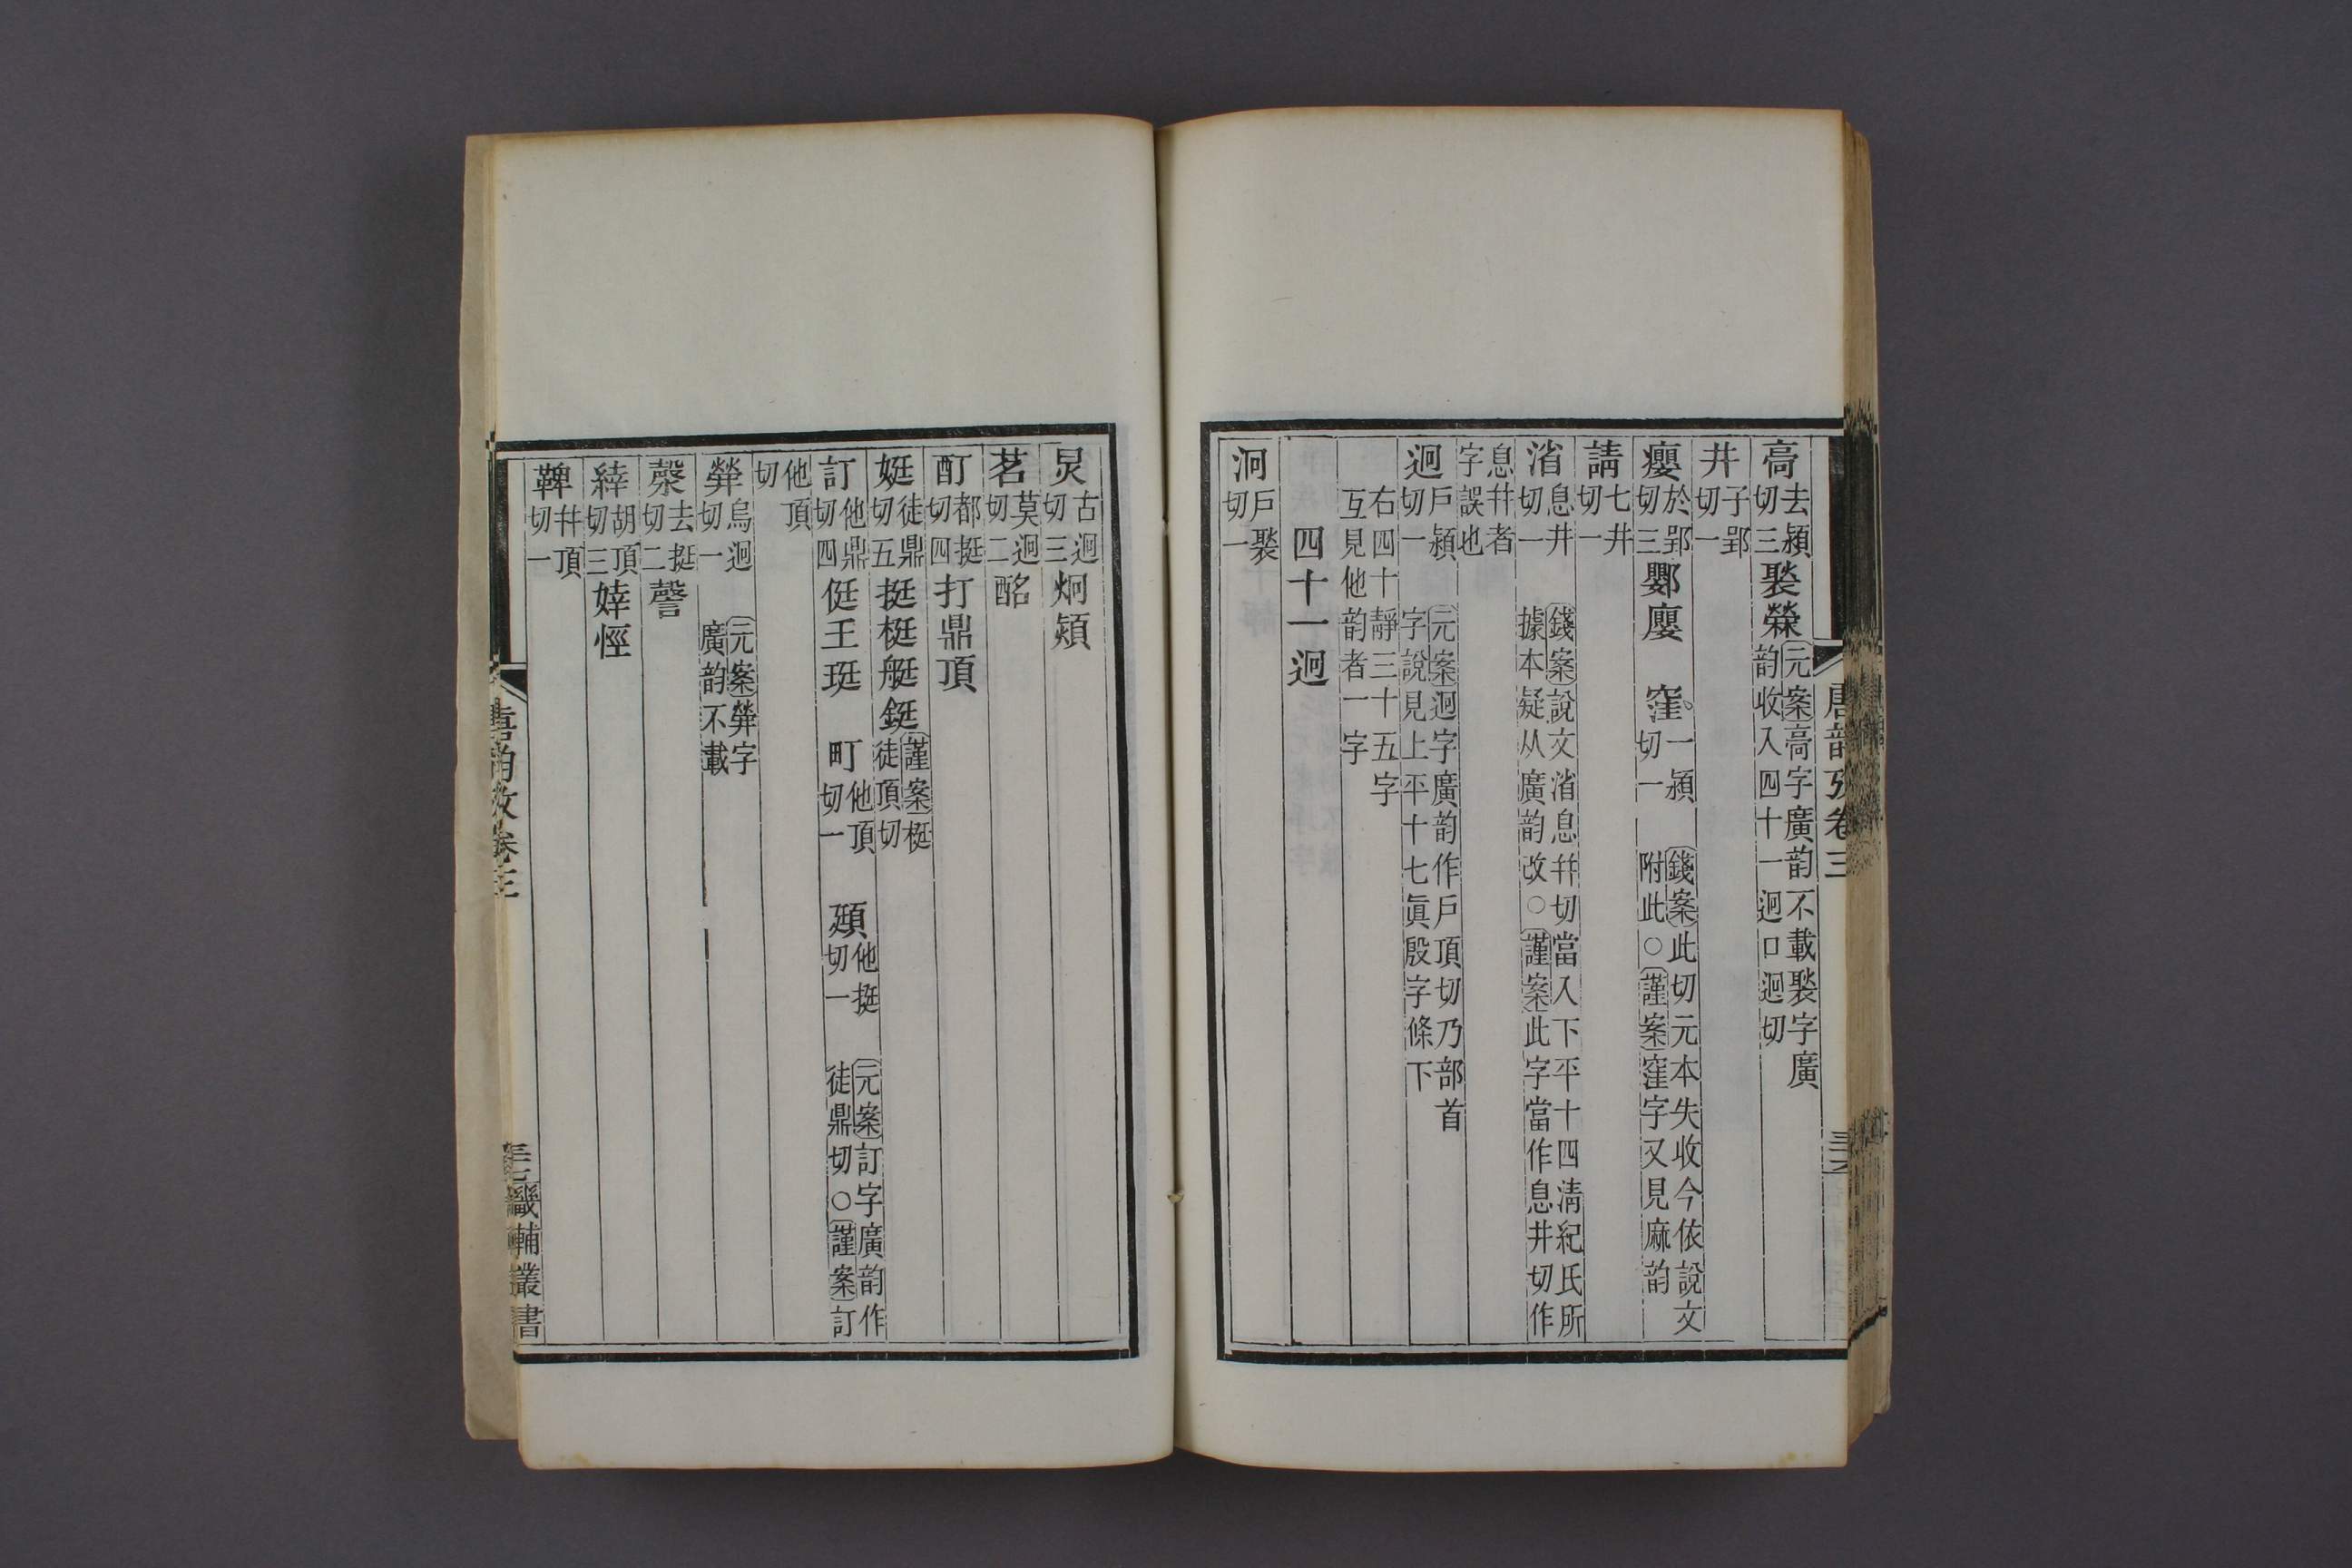 高去潁切三褧檾元案高字廣韵不載褧字廣韵收入四十一迥口迥切
井子郢切一
癭於郢切三㢍廮 窪一潁切一 錢案此切元本失收今依說文附此○謹案窪字又見麻韵
請七井切一
渻息井切一 錢案說文渻息幷切當入下平十四清紀氏所據本疑从廣韵改○謹案此字當作息井切作
息幷者字誤也
迥戶潁切一 元案迥字廣韵作戶頂切乃部首字說見上平十七眞殷字條下
右四十靜三十五字互見他韵者一字
四十一迥
泂戶褧切一
唐韵攷卷三
炅古迥切三炯熲
茗莫迥切二酩
酊都挺切四打鼎頂
娗徒鼎切五挺梃艇鋌謹案梃徒頂切
訂他鼎切四侹王珽 町他頂切一 頲他挺切一 元案訂字廣韵作徒鼎切○謹案訂
他頂切
㷫烏迥切一 元案㷫字廣韵不載
漀去挺切二謦
緈胡頂切三婞悻
鞞幷頂切一
唐韵攷卷三 畿輔叢書